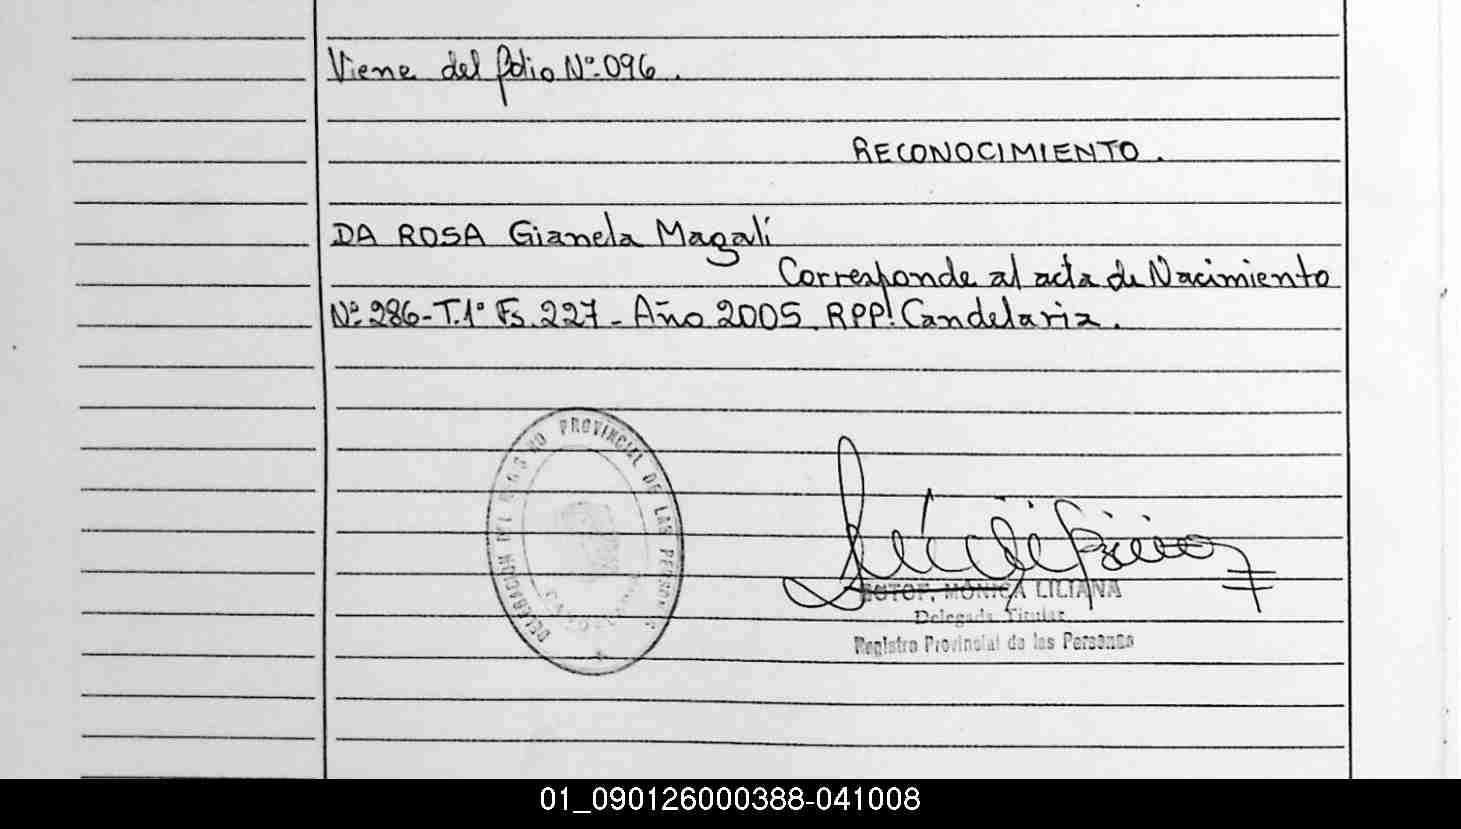 Viene del folio Nº 096.
RECONOCIMIENTO.
DA ROSA Gianela Magalí
Corresponde al acta de Nacimiento
Nº 286-T.1º Fs. 227- Año 2005. RPP! Candelaria.
DELEGACION DEL REGISTRO PROVINCIAL DE LAS PERSONAS
MONICA LILIANA
Delegada Titular
Registro Provincial de las Personas
01_090126000388-041008